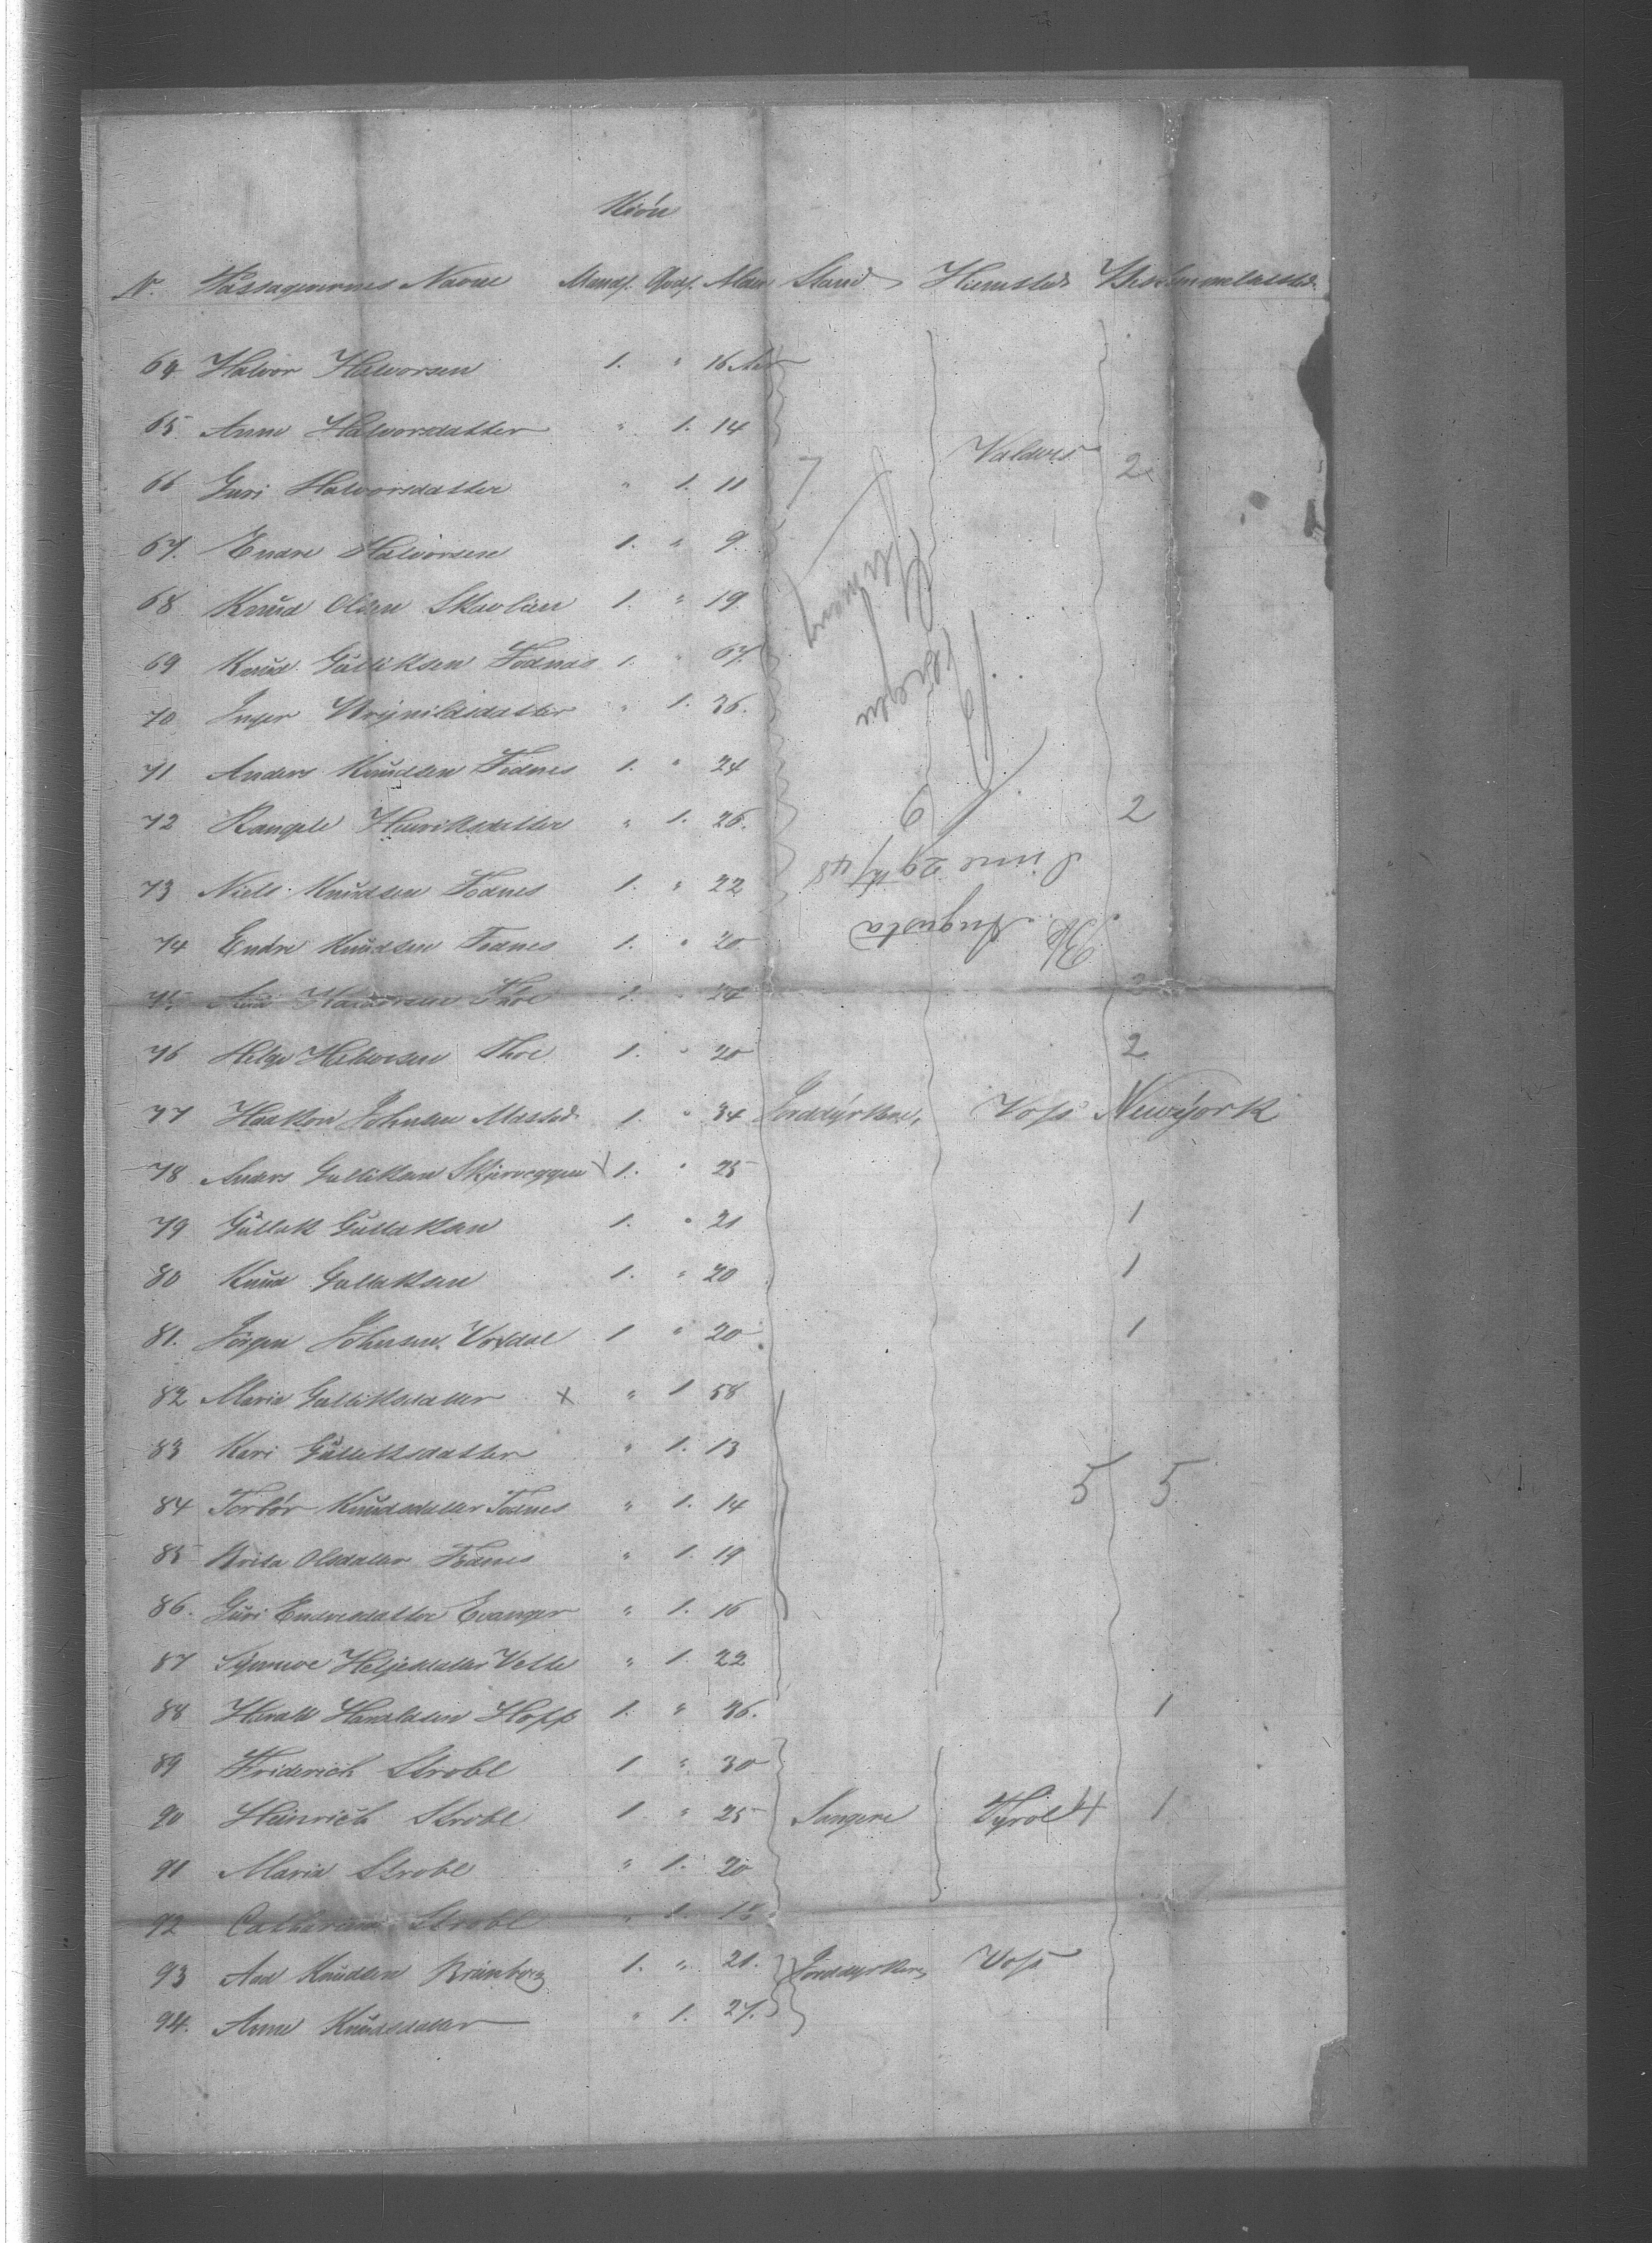 Kiön
Nr. Passagerernes Navne Mandk. Qvdk. Alder Stand Hiemsted Bestemmelsested
64 Halvor Halvorsen 1. " 16 Aar
65 Anne Halvorsdatter " 1. 14
Valders 2
66 Guri Halvorsdatter " 1. 11 7
67. Endre Halvorsen 1. " 9.
68 Knud Olsen Skavlien 1. " 19
69 Knud Gulliksen Fodnes 1. " 67.
70 Inger Brynildsdatter " 1. 36.
71 Anders Knudsen Fodnes 1. " 24
72 Rangele Henriksdatter " 1. 26. 6 2
73 Niels Knudsen Fodnes 1. " 22
June 29th/48
74 Endre Knudsen Fodnes 1. " 20
Bk. Augusta
Bergen
75 Halvorsen Thoe 1. " 24 2
76 Helge Halvorsen Thoe 1. " 20 2
77 Haakon Johnsen Massad 1. " 34 Jorddyrkere, Voss Newyork
78 Anders Gulliksen Skjerveggen X 1. " 25
79 Gullak Gullaksen 1. " 21 1
80 Knud Gullaksen 1. " 20 1
81. Jörgen Johnsen Voxdal 1 " 20 1
82 Maria Gulliksdatter X " 1 58
83 Kari Gulleksdatter " 1. 13
84 Torbör Knudsdatter Fodnes " 1. 14 5 5
85 Brita Olsdatter Fodnes " 1. 19
86. Guri Endresdatter Evanger " 1. 16
87 Synneve Heljesdatter Velle " 1. 22
88 Harald Haraldsen Hopp 1. " 36. 1
89 Friderich Strobl 1 " 30
90 Heinrich Strobl 1. " 25 Sangere Tyrol 4 1
91 Maria Strobl " 1. 20
92 Catharina Strobl " 1. 18
93 Aad Knudsen Brünborg 1. " 21. Jorddyrkere, Voss
94. Anne Knudsdatter " 1. 27.